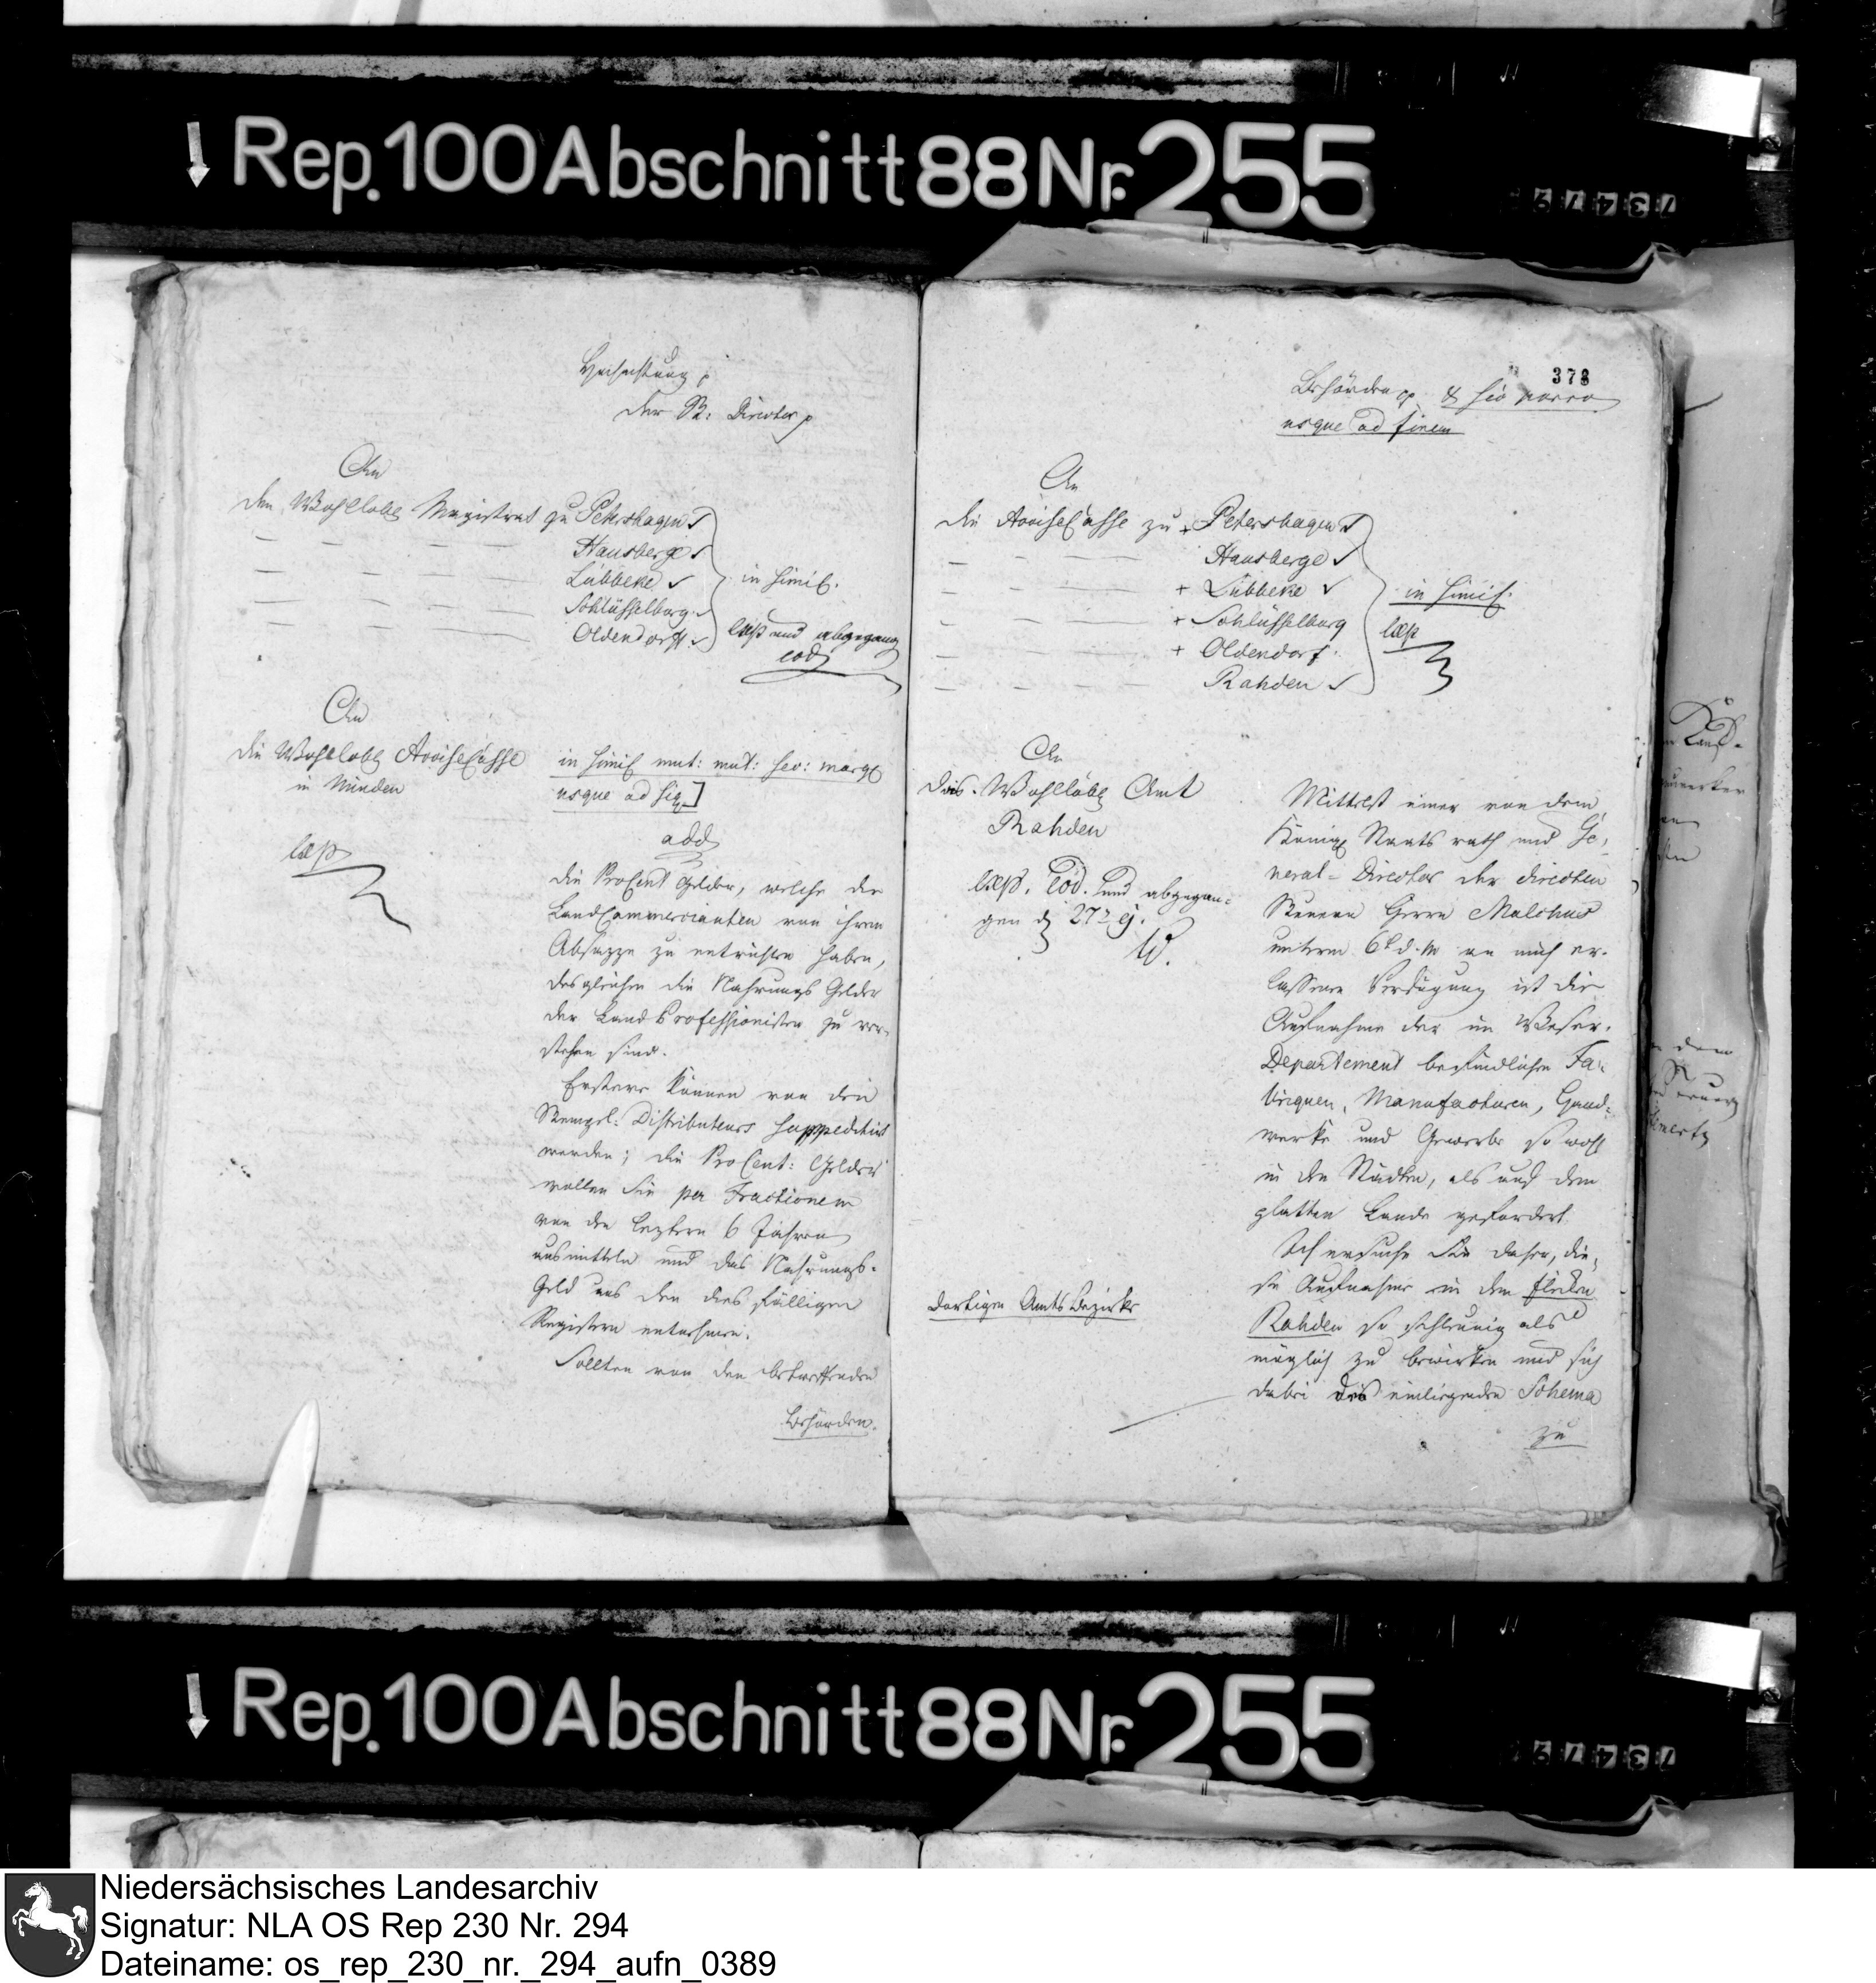 Rep. 100 Abschnitt 88 Nr. 255
Hochachtung p
der St: Director p
An
den Wohllobl Magistrat zu Petershagen
Hausberge
Lübbeke
Schlüsselburg
Oldendorff
in simil.
exp und abgegang
eod
An
die Wohllobl AcciseCasse
in Minden
exp
in simil mut: mut: sec: marg
usque ad sig
add
die ProCent Gelder, welche die
LandCommercianten von ihrem
Absazze zu entrichten haben,
desgleichen die Nahrungs Gelder
der Land Professionisten zu ver-
stehen sind.
Erstere können von den
Stempel: Distributeurs suppeditirt
werden; die ProCent: Gelder
wollen Sie per Fractionem
von den leztern 6 Jahren
ausmitteln und das Nahrungs-
Geld aus den dies fälligen
Registern entnehmen.
Sollten von den betreffenden
Behörden.
378
Behörden p & sic porro
usque ad finem
An
die AcciseCasse zu + Petershagen
Hausberge
+ Lübbeke
+ Schlüsselburg
+ Oldendorf
Rahden
in simil.
exp
An
das Wohllöbl Amt
Rahden
exp. eod. und abgegan-
gen d 27t ej.
dortigen Amts Bezirke
Mittelst einer von dem
Königl Staats rath und Ge-
neral-Director der directen
Steuern Herrn Malchus
unterm 6t d. M an mich er-
lassenen Verfügung ist die
Aufnahme der im Weser-
Departement befindlichen Fa-
briquen, Manufacturen, Hand-
werke und Gewerbe so wohl
in den Städten, als auf dem
platten Lande gefordert.
Ich ersuche Sie daher, die-
se Aufnahme in dem flecken
Rahden so schleunig als
möglich zu bewirken und sich
dabei des einliegenden Schema
zu
Rep. 100 Abschnitt 88 Nr. 255
Niedersächsisches Landesarchiv
Signatur: NLA OS Rep 230 Nr. 294
Dateiname: os_rep_230_nr._294_aufn_0389